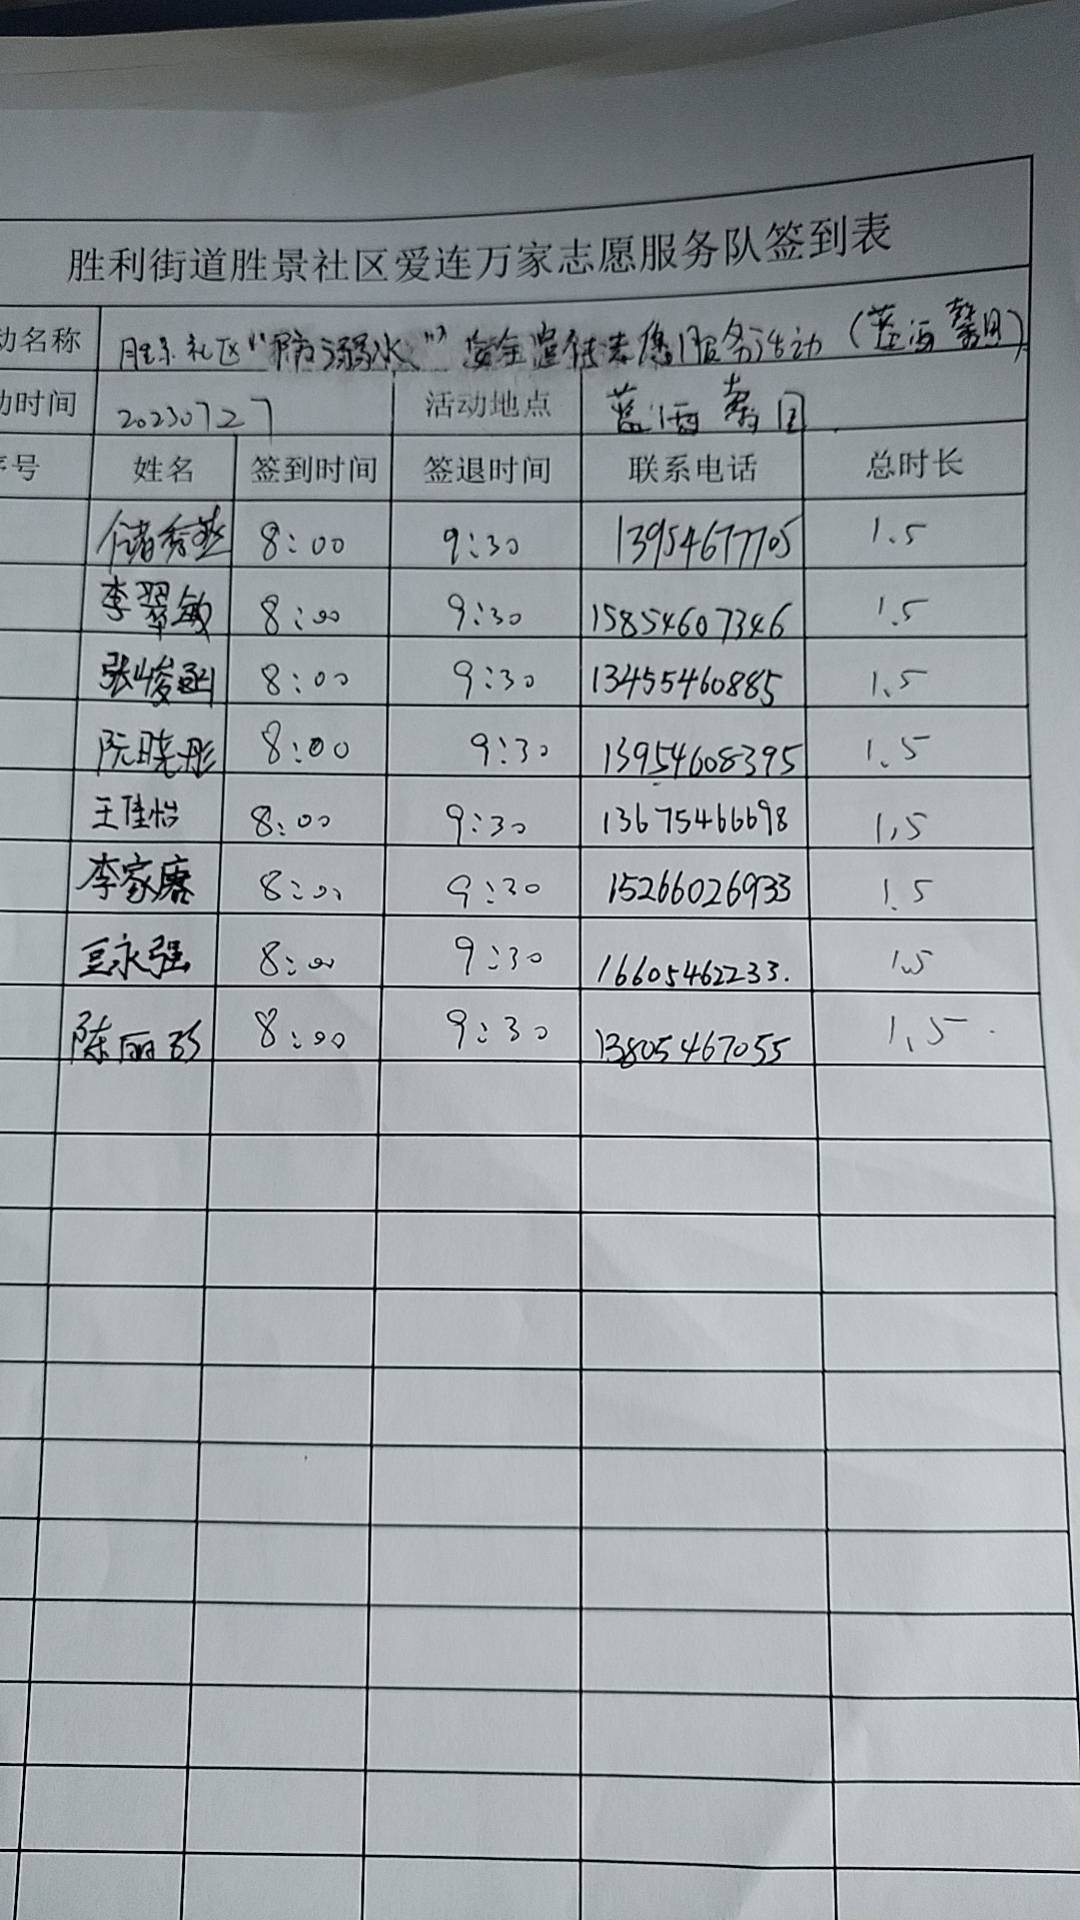 胜利街道胜景社区爱连万家志愿服务队签到表
动名称 胜景社区“防溺水”安全宣传志愿服务活动（蓝海馨园）
动时间 20230727 活动地点 蓝海馨园
序号 姓名 签到时间 签退时间 联系电话 总时长
储秀燕 8:00 9:30 13954677705 1.5
李翠敏 8:00 9:30 15854607346 1.5
张峻函 8:00 9:30 13455460885 1.5
阮晓彤 8:00 9:30 13954608395 1.5
王佳怡 8:00 9:30 13675466698 1.5
李家唐 8:00 9:30 15266026933 1.5
豆永强 8:00 9:30 16605462233. 1.5
陈丽珍 8:00 9:30 13805467055 1.5